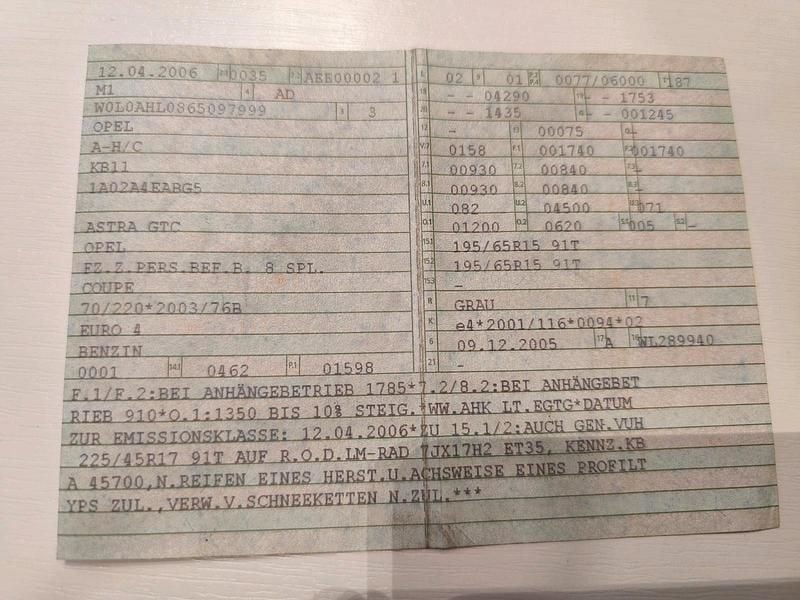 12.04.2006 0035 AEE00002 1
M1 4 AD
W0L0AHL0865097999 3 3
OPEL
A-H/C
KB11
1A02A4EABG5
ASTRA GTC
OPEL
FZ.Z.PERS.BEF.B. 8 SPL.
COUPE
70/220*2003/76B
EURO 4
BENZIN
0001 14.1 0462 P.1 01598
L 02 9 01 P.2 P.4 0077/06000 T 187
18 - - 04290 19 - - 1753
20 - - 1435 G - - 001245
12 - 13 00075 Q -
V.7 0158 F.1 001740 F.2 001740
7.1 00930 7.2 00840 7.3 -
8.1 00930 8.2 00840 8.3 -
U.1 082 U.2 04500 U.3 071
O.1 01200 O.2 0620 S.1 005 S.2 -
15.1 195/65R15 91T
15.2 195/65R15 91T
15.3 -
R GRAU 11 7
K e4*2001/116*0094*02
6 09.12.2005 17 A 16 WL289940
21 -
F.1/F.2:BEI ANHÄNGEBETRIEB 1785*7.2/8.2:BEI ANHÄNGEBET
RIEB 910*O.1:1350 BIS 10% STEIG.*WW.AHK LT.EGTG*DATUM
ZUR EMISSIONSKLASSE: 12.04.2006*ZU 15.1/2:AUCH GEN.VUH
225/45R17 91T AUF R.O.D.LM-RAD 7JX17H2 ET35, KENNZ.KB
A 45700,N.REIFEN EINES HERST.U.ACHSWEISE EINES PROFILT
YPS ZUL.,VERW.V.SCHNEEKETTEN N.ZUL.***